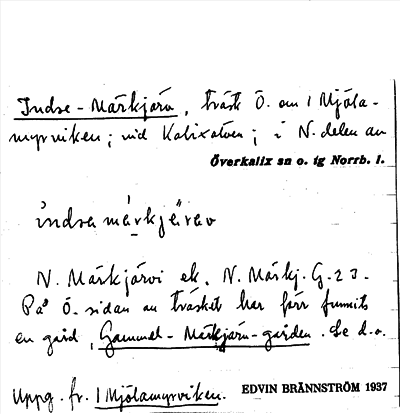 Indre-Märkjärv, träsk Ö. om 1 Mjöla-
myrviken; vid Kalixälven; i N. delen av
Överkalix sn o. tg Norrb. l.
indra märkjärav
N. Märkjärvi ek. N. Märkj. G. 23.
På Ö. sidan av träsket har förr funnits
en gård, Gammel-Märkjärv-gården. Se d.o.
Uppg. fr. 1 Mjölamyrviken. EDVIN BRÄNNSTRÖM 1937